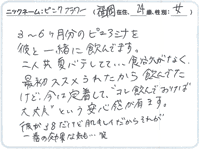 ニックネーム:ピンクフラワー 福岡 在住、24歳、性別:女
3〜6ヶ月分のピュアミナを
彼と一緒に飲んでます。
二人共夏バテしてて…食欲がなく、
最初ススメられたから飲んでた
けど、今は定着して、"コレ飲んでおけば
大丈夫"という安心感が有ます。
彼が38だけど肌キレイだからそれが
一番の効果なかも…笑